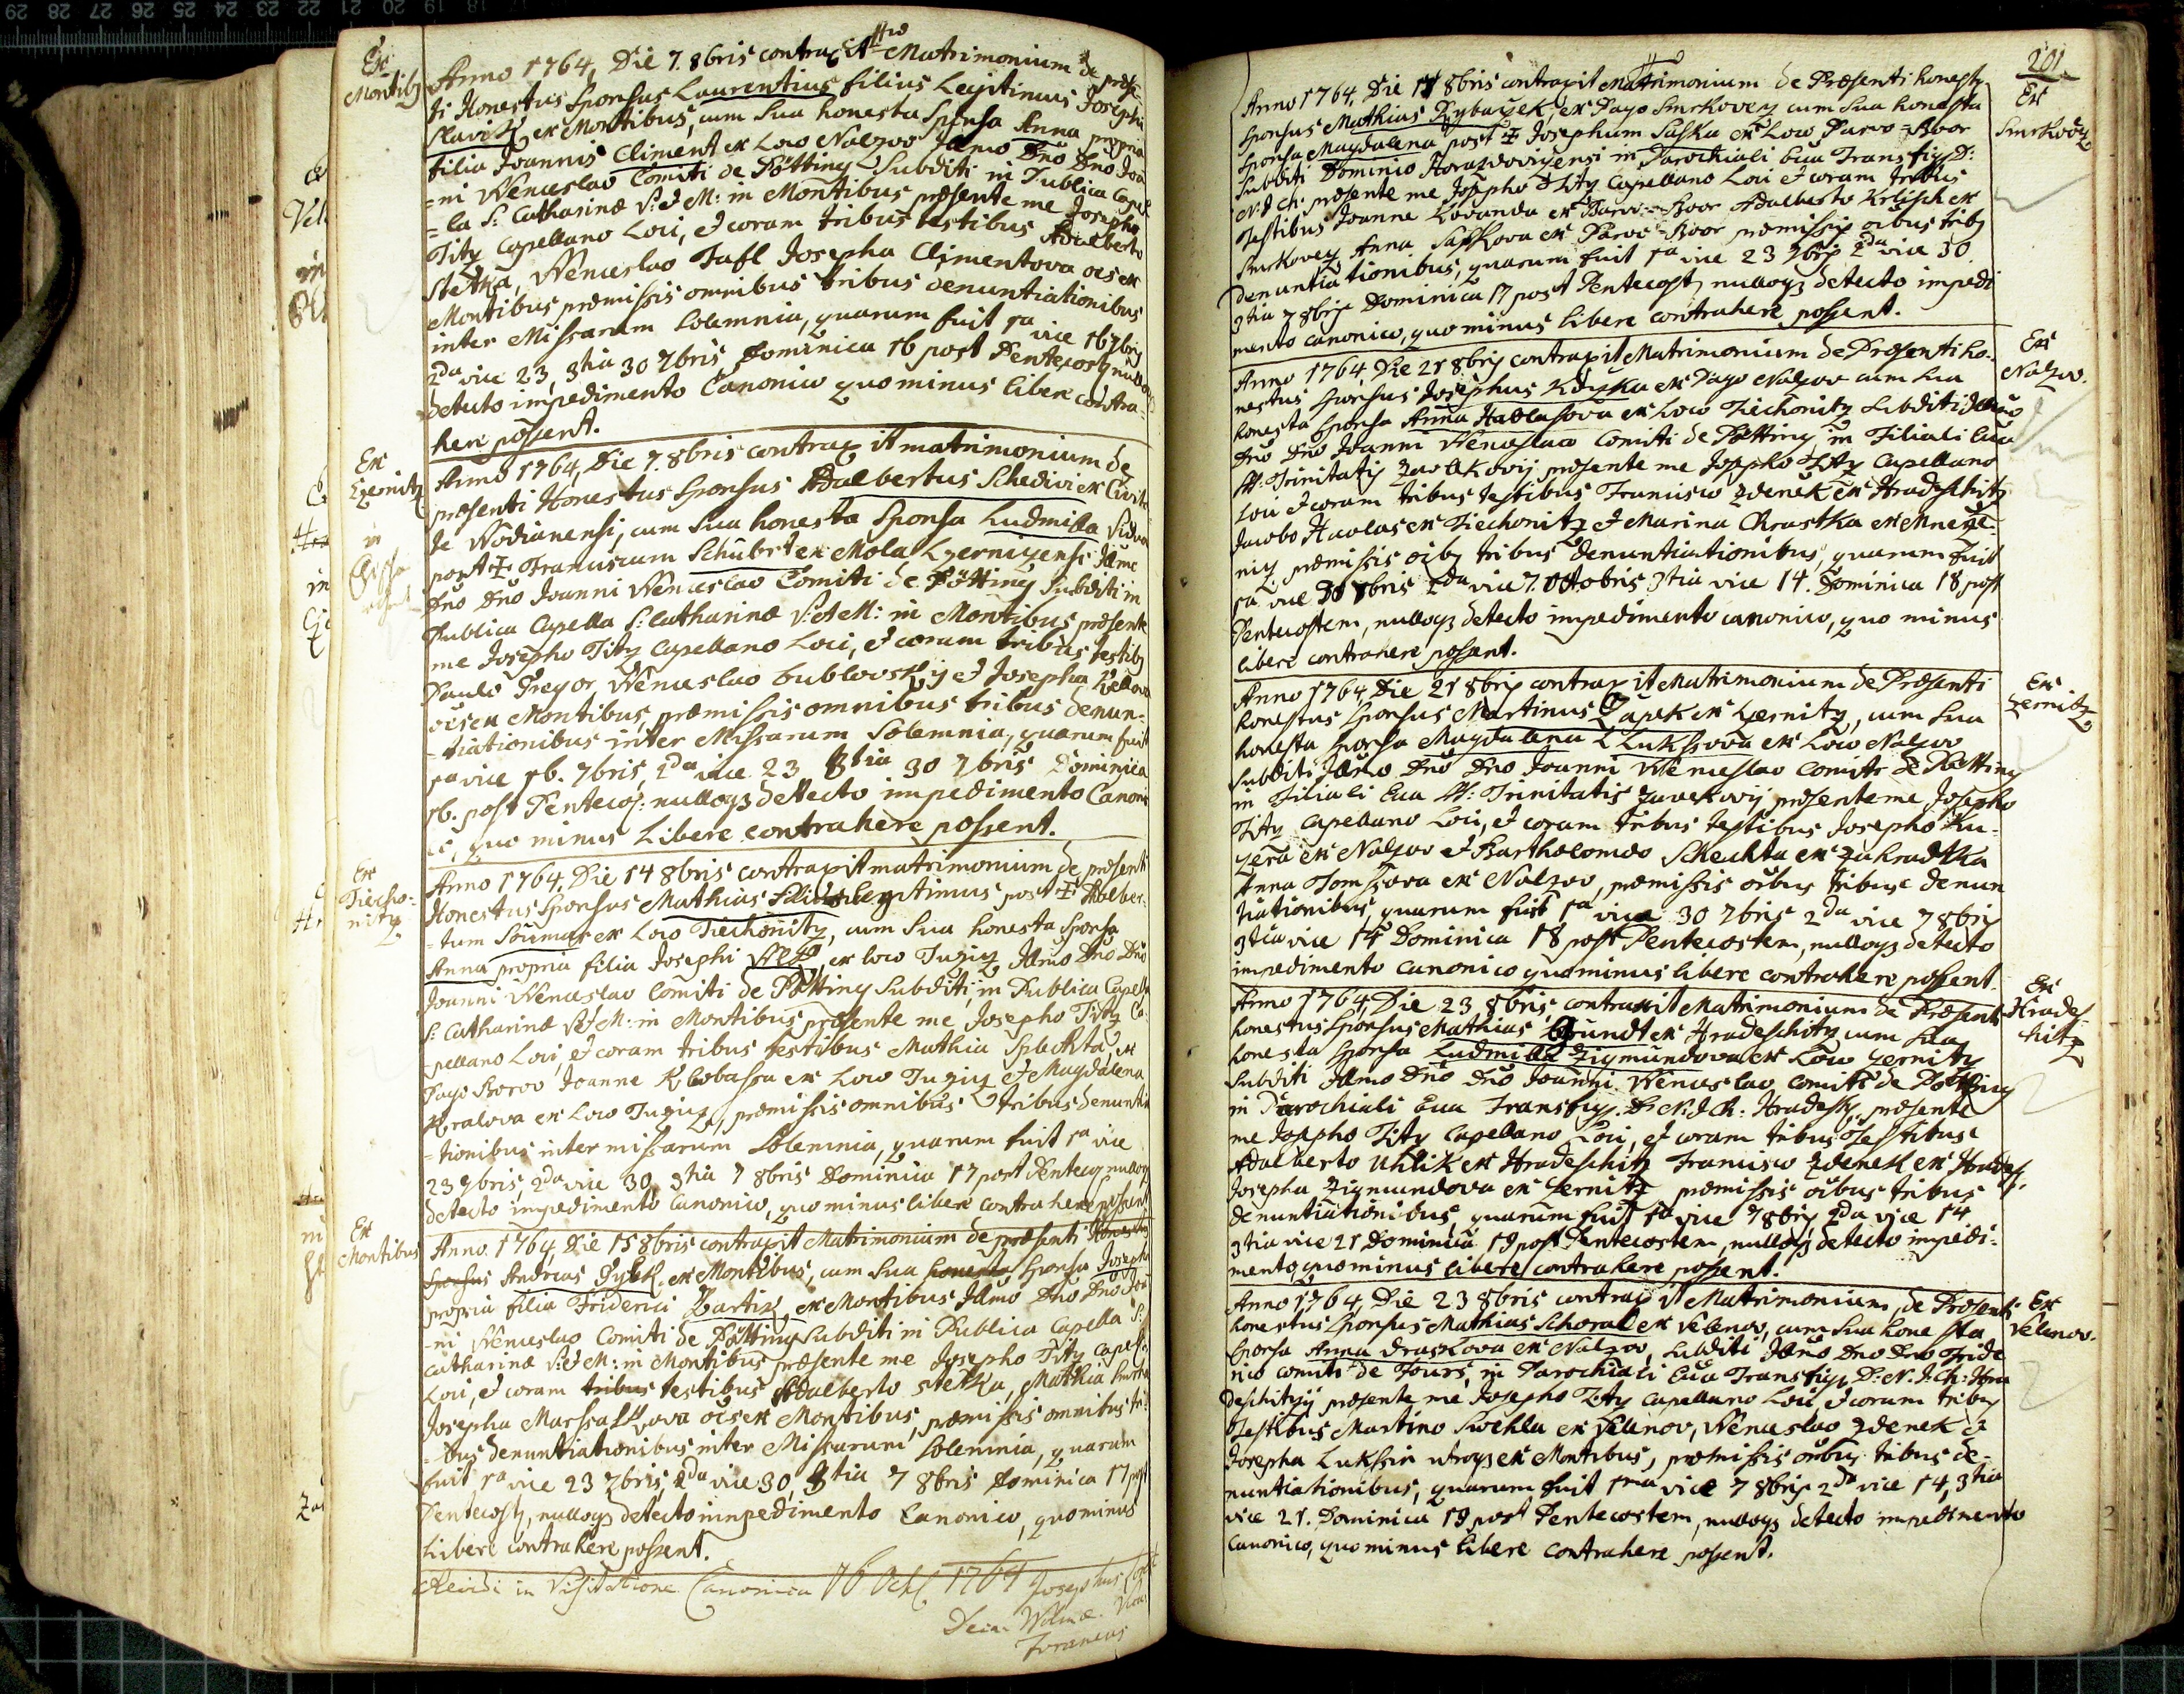 Ex
Montibg
Anno 1764, Die 7. 8bris contraxit Matrimonium de præsen
ti Honestus Sponsus Laurentius filius Legitimus Josephi
Slavik ex Montibus, cum Sua honesta Sponsa Anna propria
filia Joannis Climent ex Loco Nalzov Jllmo Dno Dno Joa
=ni Wenceslao Comiti de Pötting Subditi in Publica Capel
=la S: Catharinæ V: et M: in Montibus præsente me Josepho
Tity Capellano Loci, et coram tribus testibus Adalberto
Stetka, Wenceslao Tafl Josepha Climentova oes ex
Montibus præmissis omnibus tribus denuntiationibus
inter Missarum solemnia, quarum fuit 1a vice 16 7bris
2da vice 23, 3tia 30 7bris Dominica 16 post Pentecost nulloq
detecto impedimento Canonico quo minus libere contra=
here possent.
Ex
Czernitz
in
Anno 1764, Die 7. 8bris contraxit matrimonium de
præsenti Honestus Sponsus Adalbertus Schedivi ex Civita
te Wodianensi, cum Sua honesta Sponsa Ludmilla Vidua
post ‡ Franciscum Schubrt ex Mola Czernicensi Jllmo
Dno Dno Joanni Wenceslao Comiti de Pötting Subditi in
Publica Capella S: Catharinæ V: et M: in Montibus præsente
me Josepho Tity Capellano Loci, et coram tribus testibg
Paulo Pregor, Wenceslao bublovskij et Josepha
oes ex Montibus, præmissis omnibus tribus denun=
=tiationibus inter Missarum Solemnia, quarum fuit
1a vice 16. 7bris, 2da vice 23 3tia 30 7bris Dominica
16. post Pentecos: nulloq detecto impedimento Canoni
co, quo minus Libere contrahere possent.
Ex
Tiecho=
nitz
Anno 1764, Die 14 8bris contraxit matrimonium de præsenti
Honestus Sponsus Mathias Filius legitimus post ‡ Adalber=
=tum Soumar ex Loco Tiechonitz, cum Sua honesta Sponsa
Anna propria filia Josephi ex loco Tugitz Jllmo Dno Dno
Joanni Wenceslao Comiti de Pötting Subditi, in Publica Capella
S: Catharinæ V: et M: in Montibus præsente me Josepho Tity Ca=
=pellano Loci, et coram tribus testibus Mathia Splechta, ex
Pago Borov Joanne Klobassa ex Loco Tugitz et Magdalena
Kralova ex Loco Tugitz, præmissis omnibus tribus denuntia
=tionibus inter missarum Solemnia, quarum fuit 1a vice
23 7bris, 2da vice 30, 3tia 7 8bris Dominica 17 post Pentecos nulloq
detecto impedimento Canonico, quo minus libere contrahere possent
Ex
Montibus
Anno 1764, Die 15 8bris contraxit Matrimonium de præsenti Honestus
Sponsus Andreas Pytek ex Montibus, cum Sua honesta Sponsa Josepha
propria filia Friderici Bartix, ex Montibus Jllmo Dno Dno Joa
=ni Wenceslao Comiti de Pötting Subditi in Publica Capella S:
Catharinæ V: et M: in Montibus præsente me Josepho Tity Capell:
Loci, et coram tribus testibus Adalberto Stetka, Mathia
Josepha Marssalkova oes ex Montibus, præmissis omnibus tri=
=bus denuntiationibus inter Missarum Solemnia, quarum
fuit 1a vice 23 7bris, 2da vice 30, 3tia 7 8bris Dominica 17 post
Pentecost, nulloq detecto impedimento Canonico, quo minus
Libere contrahere possent.
Revidi in Visitatione Canonica 16 Octb 1764 Josephus
Foraneus
201
Ex
Smrkovez
Anno 1764, Die 15 8bris contraxit Matrimonium de Præsenti honesty
Sponsus Mathias Rybarzek, ex Pago Smrkovez cum Sua honesta
Sponsa Magdalena post ‡ Josephum Saska ex Loco Parvo=Boor
Subditi Dominio Horazdoviczensi in Parochiali Ecca Transfig D:
N: J: Ch: præsente me Josepho Tity Capellano Loci et coram tribus
Testibus Joanne Kovanda ex Parvo=Boor Adalberto Krlisch ex
Smrkovez Anna Saskova ex Parvo=Boor præmissis oibus tribg
denuntiationibus, quarum fuit 1a vice 23 7bris 2da vice 30
3tia 7 8bris Dominica 17 post Pentecost, nulloq detecto impedi
mento canonico, quo minus libere contrahere possent.
Ex
Nalzov.
Anno 1764, Die 21 8bris contraxit Matrimonium de Præsenti ho=
nestus Sponsus Josephus Kdyska ex Pago Nalzov cum Sua
honesta Sponsa Anna Hablasova ex Loco Tiechonitz Subditi Jllmo
Dno Dno Joanni Wenceslao Comiti de Pötting in Filiali Ecca
SS: Trinitatis Zavlkovij præsente me Josepho Tity Capellano
Loci et coram tribus Testibus Francisco Zdenek ex Hradeschitz
Jacobo Havlas ex Tiechonitz et Marina Chrastka ex Mneze=
nitz præmissis oibg tribus denuntiationibus, quarum fuit
1a vice 30 7bris 2da vice 7. Octobris 3tia vice 14. Dominica 18 post
Pentecostem, nulloq detecto impedimento canonico, quo minus
libere contrahere possent.
Ex
Zernitz
Anno 1764, Die 21 8bris contraxit Matrimonium de Præsenti
honestus Sponsus Martinus Czapek ex Zernitz, cum Sua
honesta Sponsa Magdalena Lukssova ex Loco Nalzov
Subditi Jllmo Dno Dno Joanni Wenceslao Comiti de Pötting
in Filiali Ecca SS: Trinitatis Zavlkovij præsente me Josepho
Tity Capellano Loci, et coram tribus testibus Josepho Ku=
zera ex Nalzov et Bartholomæo Schlechta ex Zahradtka
Anna Tomssova ex Nalzov, præmissis oibus tribus denun
tiationibus, quarum fuit 1a vice 30 7bris 2da vice 7 8bris
3tia vice 14 Dominica 18 post Pentecostem, nulloq detecto
impedimento canonico quominus libere contrahere possent.
Ex
Hrades=
chitz
Anno 1764, Die 23 8bris, contraxit Matrimonium de Præsenti
honestus Sponsus Mathias Grundt ex Hradeschitz cum Sua
honesta Sponsa Ludmilla Zigmundova ex Loco Zernitz
Subditi Jllmo Dno Dno Joanni Wenceslao Comiti de Pötting
in Parochiali Ecca Transfig. D: N: J: Ch: Hradesch. præsente
me Josepho Tity Capellano Loci, et coram tribus Testibus
Adalberto Uhlik ex Hradeschitz Francisco Zdenek ex Hradesch.
Josepha Zigmundova ex Zernitz præmissis oibus tribus
denuntiationibus, quarum fuit 1a vice 7 8bris 2da vice 14
3tia vice 21 Dominica 19 post Pentecostem, nulloq detecto impedi=
mento, quo minus libere contrahere possent.
Ex
Velenov.
Anno 1764, Die 23 8bris contraxit Matrimonium, de Præsenti
honestus Sponsus Mathias Schoral ex Velenov, cum Sua honesta
Sponsa Anna Draskova ex Nalzov, Subditi Jllmo Dno Dno Fride
rico comiti de Fours, in Parochiali Ecca Transfig. D: N: J: Ch: Hra
deschitzij præsente me Josepho Tity Capellano Loci, et coram tribg
Testibus Martino Swehla ex Velenov, Wenceslao Zdenek et
Josepha Lukssin utroq ex Montibus, præmissis oibus tribus de=
nuntiationibus, quarum fuit 1ma vice 7 8bris 2da vice 14, 3tia
vice 21. Dominica 19 post Pentecostem, nulloq detecto impedimento
canonico, quo minus libere contrahere possent.